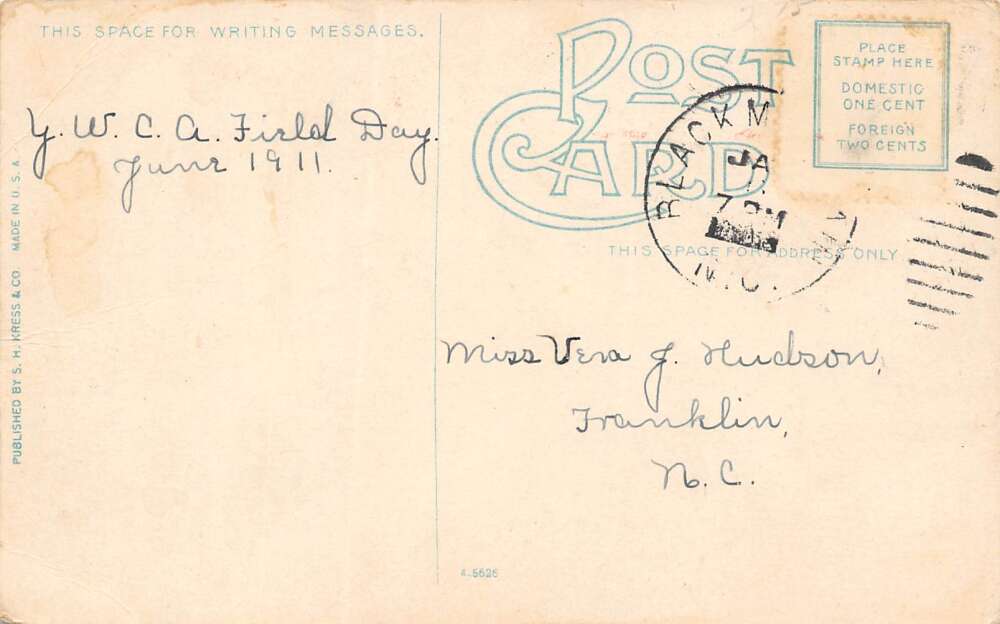 THIS SPACE FOR WRITING MESSAGES.
POST CARD
PLACE
STAMP HERE
DOMESTIC
ONE CENT
FOREIGN
TWO CENTS
Y. W. C. A. Field Day.
June 1911.
BLACK M
JA
7 PM
N.C.
THIS SPACE FOR ADDRESS ONLY
Miss Vera J. Hudson,
Franklin,
N. C.
PUBLISHED BY S. H. KRESS & CO. MADE IN U.S.A.
A-5626